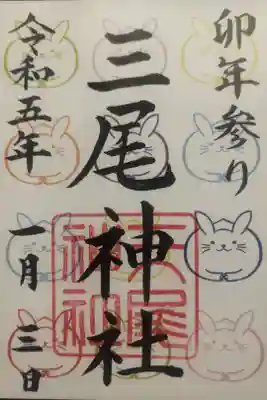 卯年参り
三尾神社
三尾神社
令和五年
一月三日